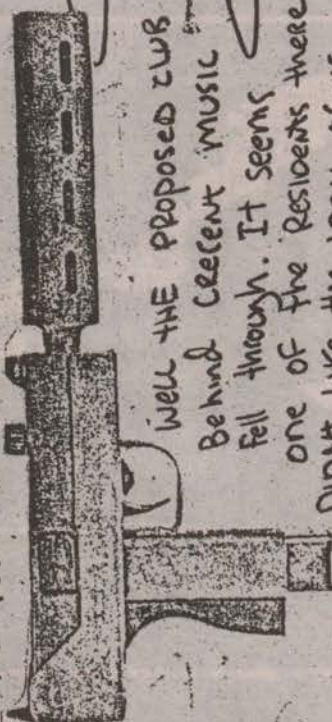 Well THE PROPOSED CLUB
BeHIND CReCeNT MUSIC
Fell through. It Seems
ONe OF the ResIDeNts there
DIDN'T